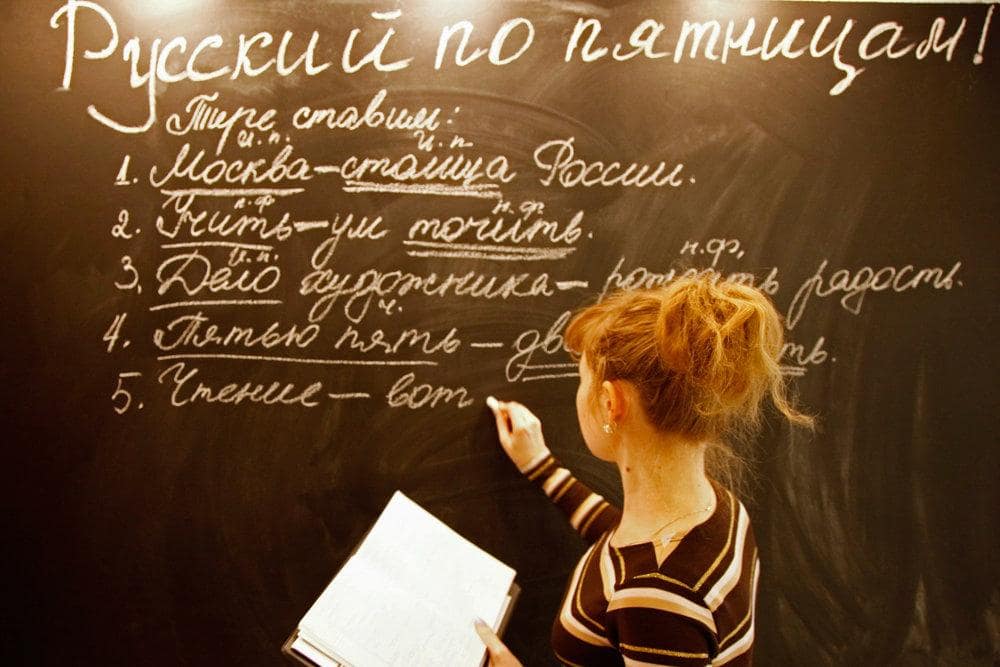 Русский по пятницам!
Тире ставим:
и.п. и.п
1. Москва – столица России.
н.ф н.ф.
2. Учить – ум точить.
и.п. н.ф.
3. Дело художника – радость.
ч.
4. Пятью пять –
5. Чтение – вот